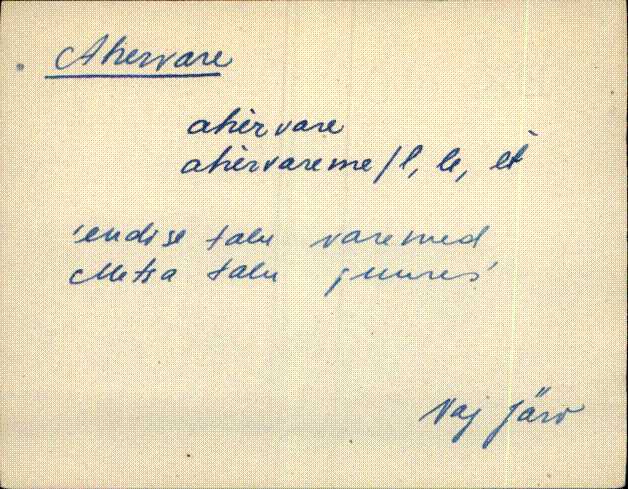 Ahervare
ahèrvare
ahèrvareme/l, le, èt
'endise talu varemed
Metsa talu juures
Vaj Järv